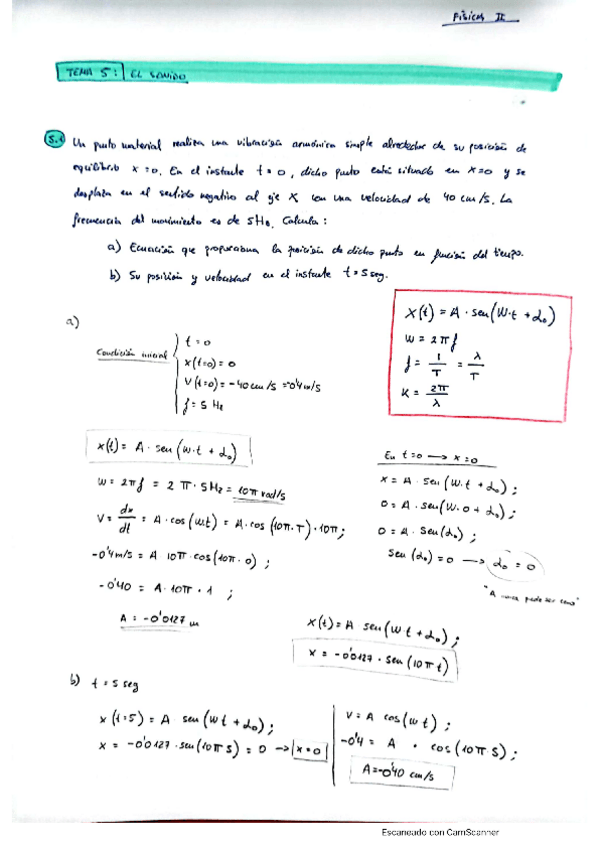 FÍSICAS II
TEMA 5: EL SONIDO
5.1 Un punto material realiza una vibración armónica simple alrededor de su posición de
equilibrio x=0. En el instante t=0, dicho punto está situado en x=0 y se
desplaza en el sentido negativo al eje X con una velocidad de 40 cm/s. La
frecuencia del movimiento es de 5Hz. Calcula:
a) Ecuación que proporciona la posición de dicho punto en función del tiempo.
b) Su posición y velocidad en el instante t=5 seg.
X(t) = A · sen(W·t + αo)
W = 2πf
f = 1/T = λ/T
K = 2π/λ
a)
Condición inicial
t = 0
x(t=0) = 0
V(t=0) = -40 cm/s = -0'4 m/s
f = 5 Hz
x(t) = A · sen(w·t + αo)
W = 2πf = 2π · 5Hz = 10π rad/s
V = dx/dt = A · cos(wt) = A · cos(10π·T)·10π;
-0'4 m/s = A · 10π · cos(10π·0) ;
-0'40 = A · 10π · 1 ;
A = -0'0127 m
En t=0 → x=0
x = A · sen(w·t + αo) ;
0 = A · sen(w·0 + αo) ;
0 = A · sen(αo) ;
sen(αo) = 0 → αo = 0
"A nunca puede ser cero"
x(t) = A sen(w·t + αo) ;
x = -0'0127 · sen(10πt)
b) t = 5 seg
x(t=5) = A sen(wt + αo) ;
x = -0'0127 · sen(10π5) = 0 → x=0
V = A cos(wt) ;
-0'4 = A · cos(10π·5) ;
A=-0'40 cm/s
Escaneado con CamScanner